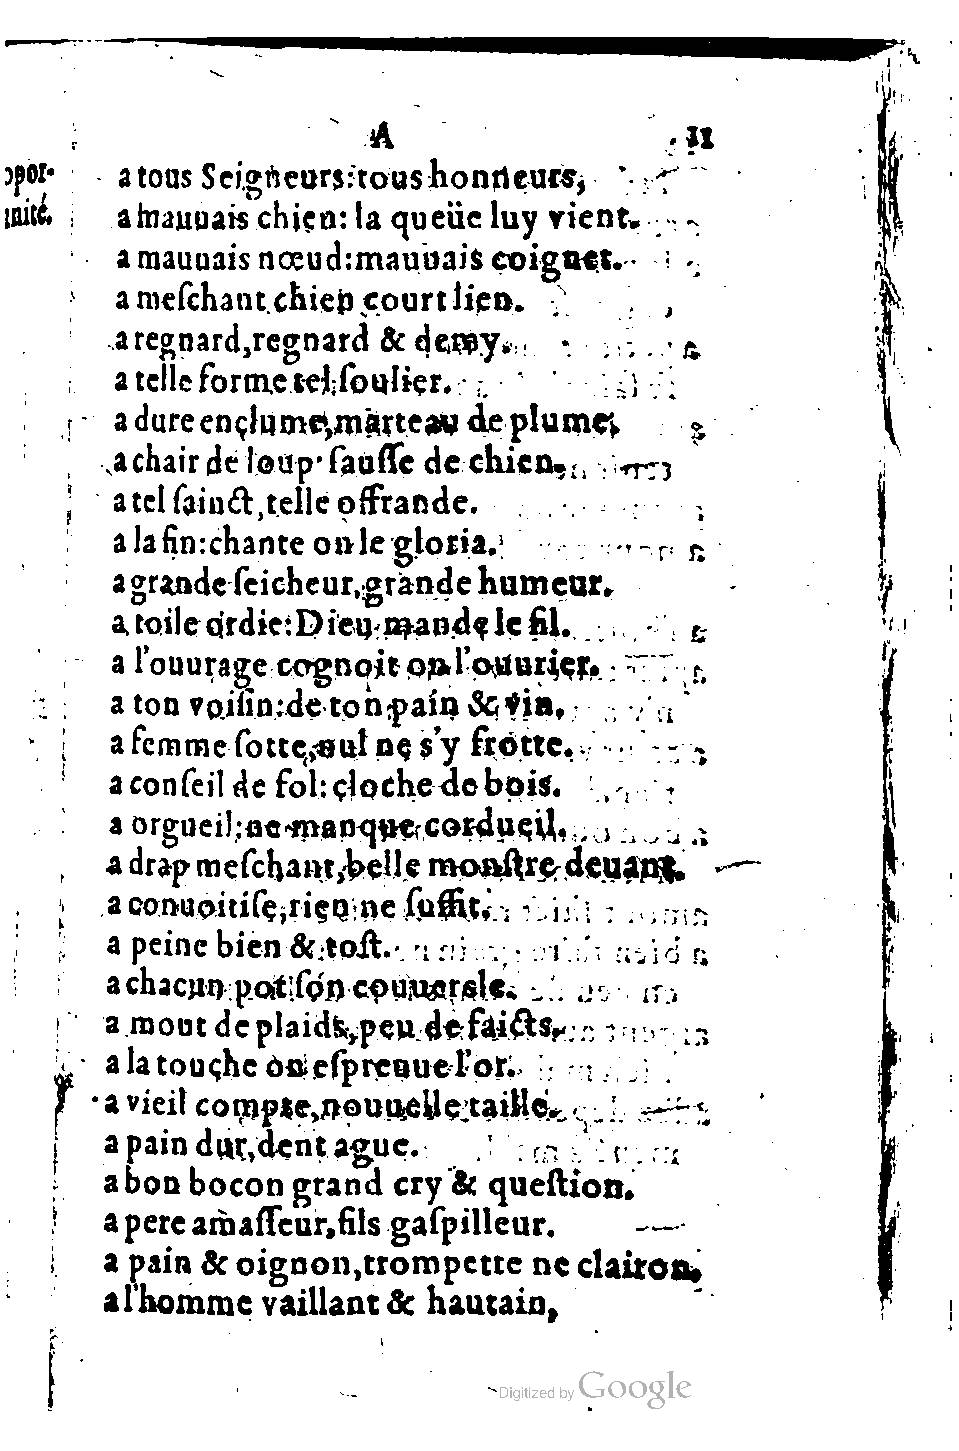 A 11
a tous Seigneurs: tous honneurs,
a mauuais chien: la queüe luy vient.
a mauuais nœud: mauuais coignet.
a meſchant chien court lien.
a regnard, regnard & demy.
a telle forme tel ſoulier.
a dure enclume, marteau de plume,
a chair de loup ſauſſe de chien.
a tel ſainct, telle offrande.
a la fin: chante on le gloria.
a grande ſeicheur, grande humeur.
a toile ordie: Dieu mande le fil.
a l'ouurage cognoit on l'ouurier.
a ton voiſin: de ton pain & vin.
a femme ſotte, nul ne s'y frotte.
a conſeil de fol: cloche de bois.
a orgueil: ne manque cordueil.
a drap meſchant, belle monſtre deuant.
a conuoitiſe, rien ne ſuffit.
a peine bien & toſt.
a chacun pot ſon couuercle.
a mout de plaids, peu de faicts.
a la touche on eſpreuue l'or.
a vieil compte, nouuelle taille.
a pain dur, dent ague.
a bon bocon grand cry & queſtion.
a pere amaſſeur, fils gaſpilleur.
a pain & oignon, trompette ne clairon.
a l'homme vaillant & hautain,
Digitized by Google